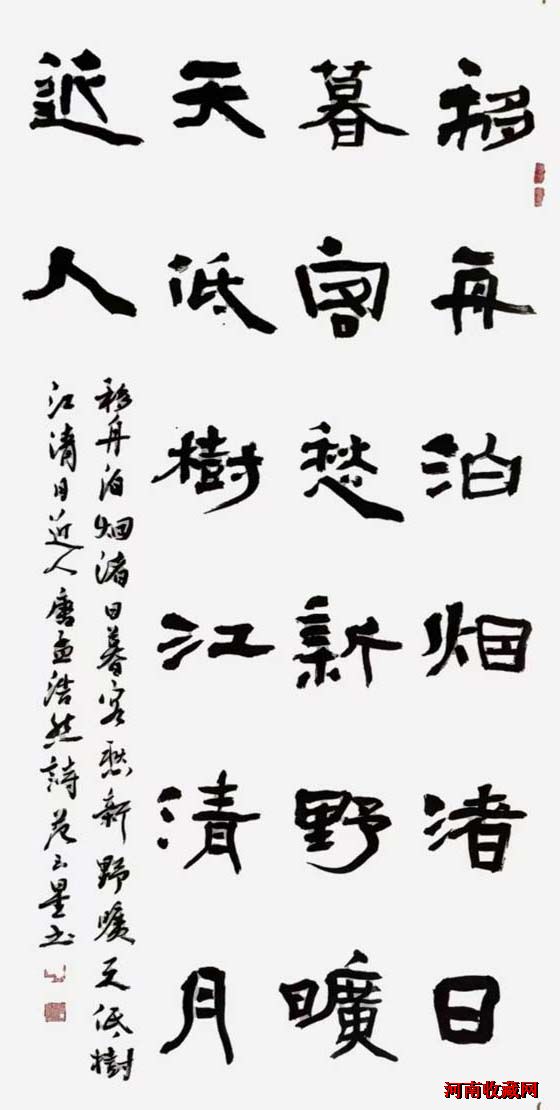 移舟泊烟渚日
暮客愁新野曠
天低樹江清月
近人
移舟泊烟渚日暮客愁新野曠天低樹
江清月近人唐孟浩然詩范星书
河南收藏网